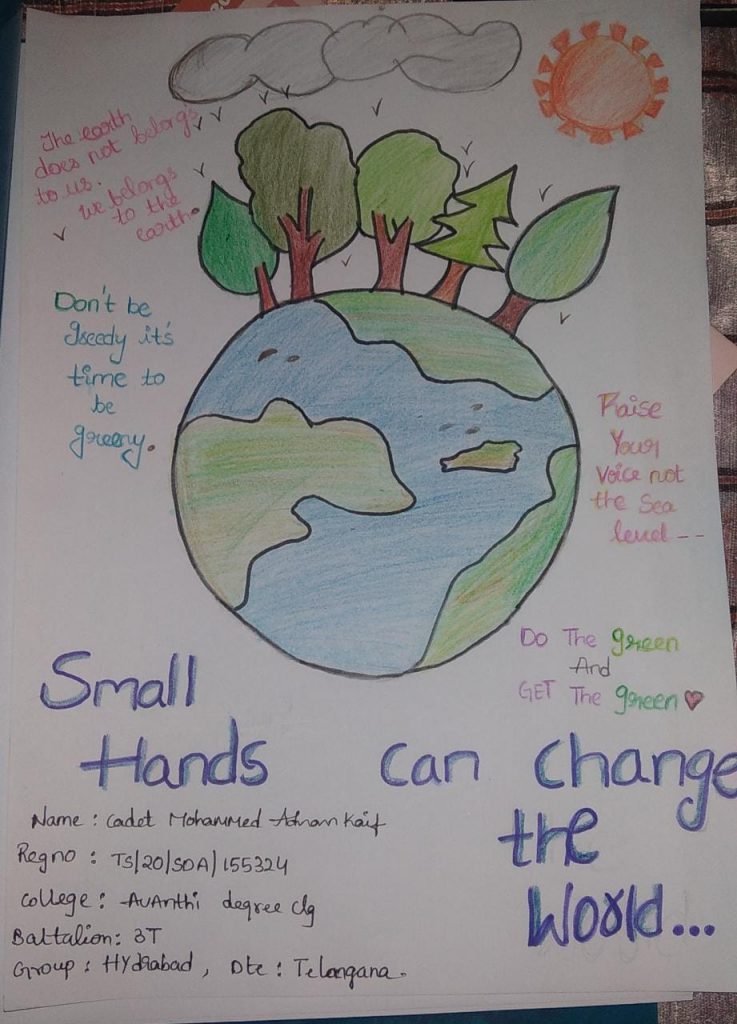 The earth
does not belongs
to us.
we belongs
to the
earth.
Don't be
greedy it's
time to
be
greeny.
Raise
Your
Voice not
the Sea
level --
Do The green
And
GET The green
Small
Hands can change
the
World...
Name : Cadet Mohammed Adnan Kaif
Regno : TS/20/SDA/155324
College : Avanthi degree clg
Battalion: 3T
Group : Hydrabad, Dte : Telangana.